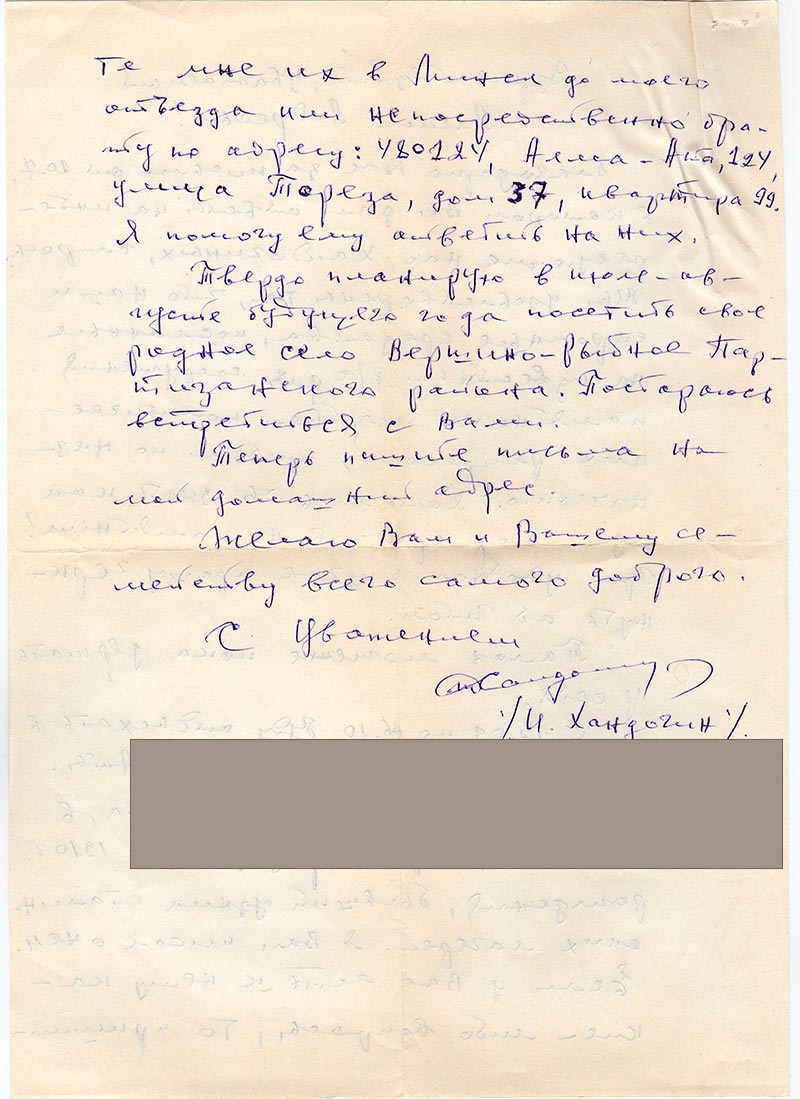 те мне их в Липецк до моего
отъезда или непосредственно бра-
ту по адресу: 480124, Алма-Ата, 124,
улица Тореза, дом 37, квартира 99.
Я помогу ему ответить на них.
Твердо планирую в июле-ав-
густе будущего года посетить свое
родное село Вершино-Рыбное Пар-
тизанского района. Постараюсь
встретиться с Вами.
Теперь пишите письма на
мой домашний адрес.
Желаю Вам и Вашему се-
мейству всего самого доброго.
С Уважением
/И. Хандогин/.